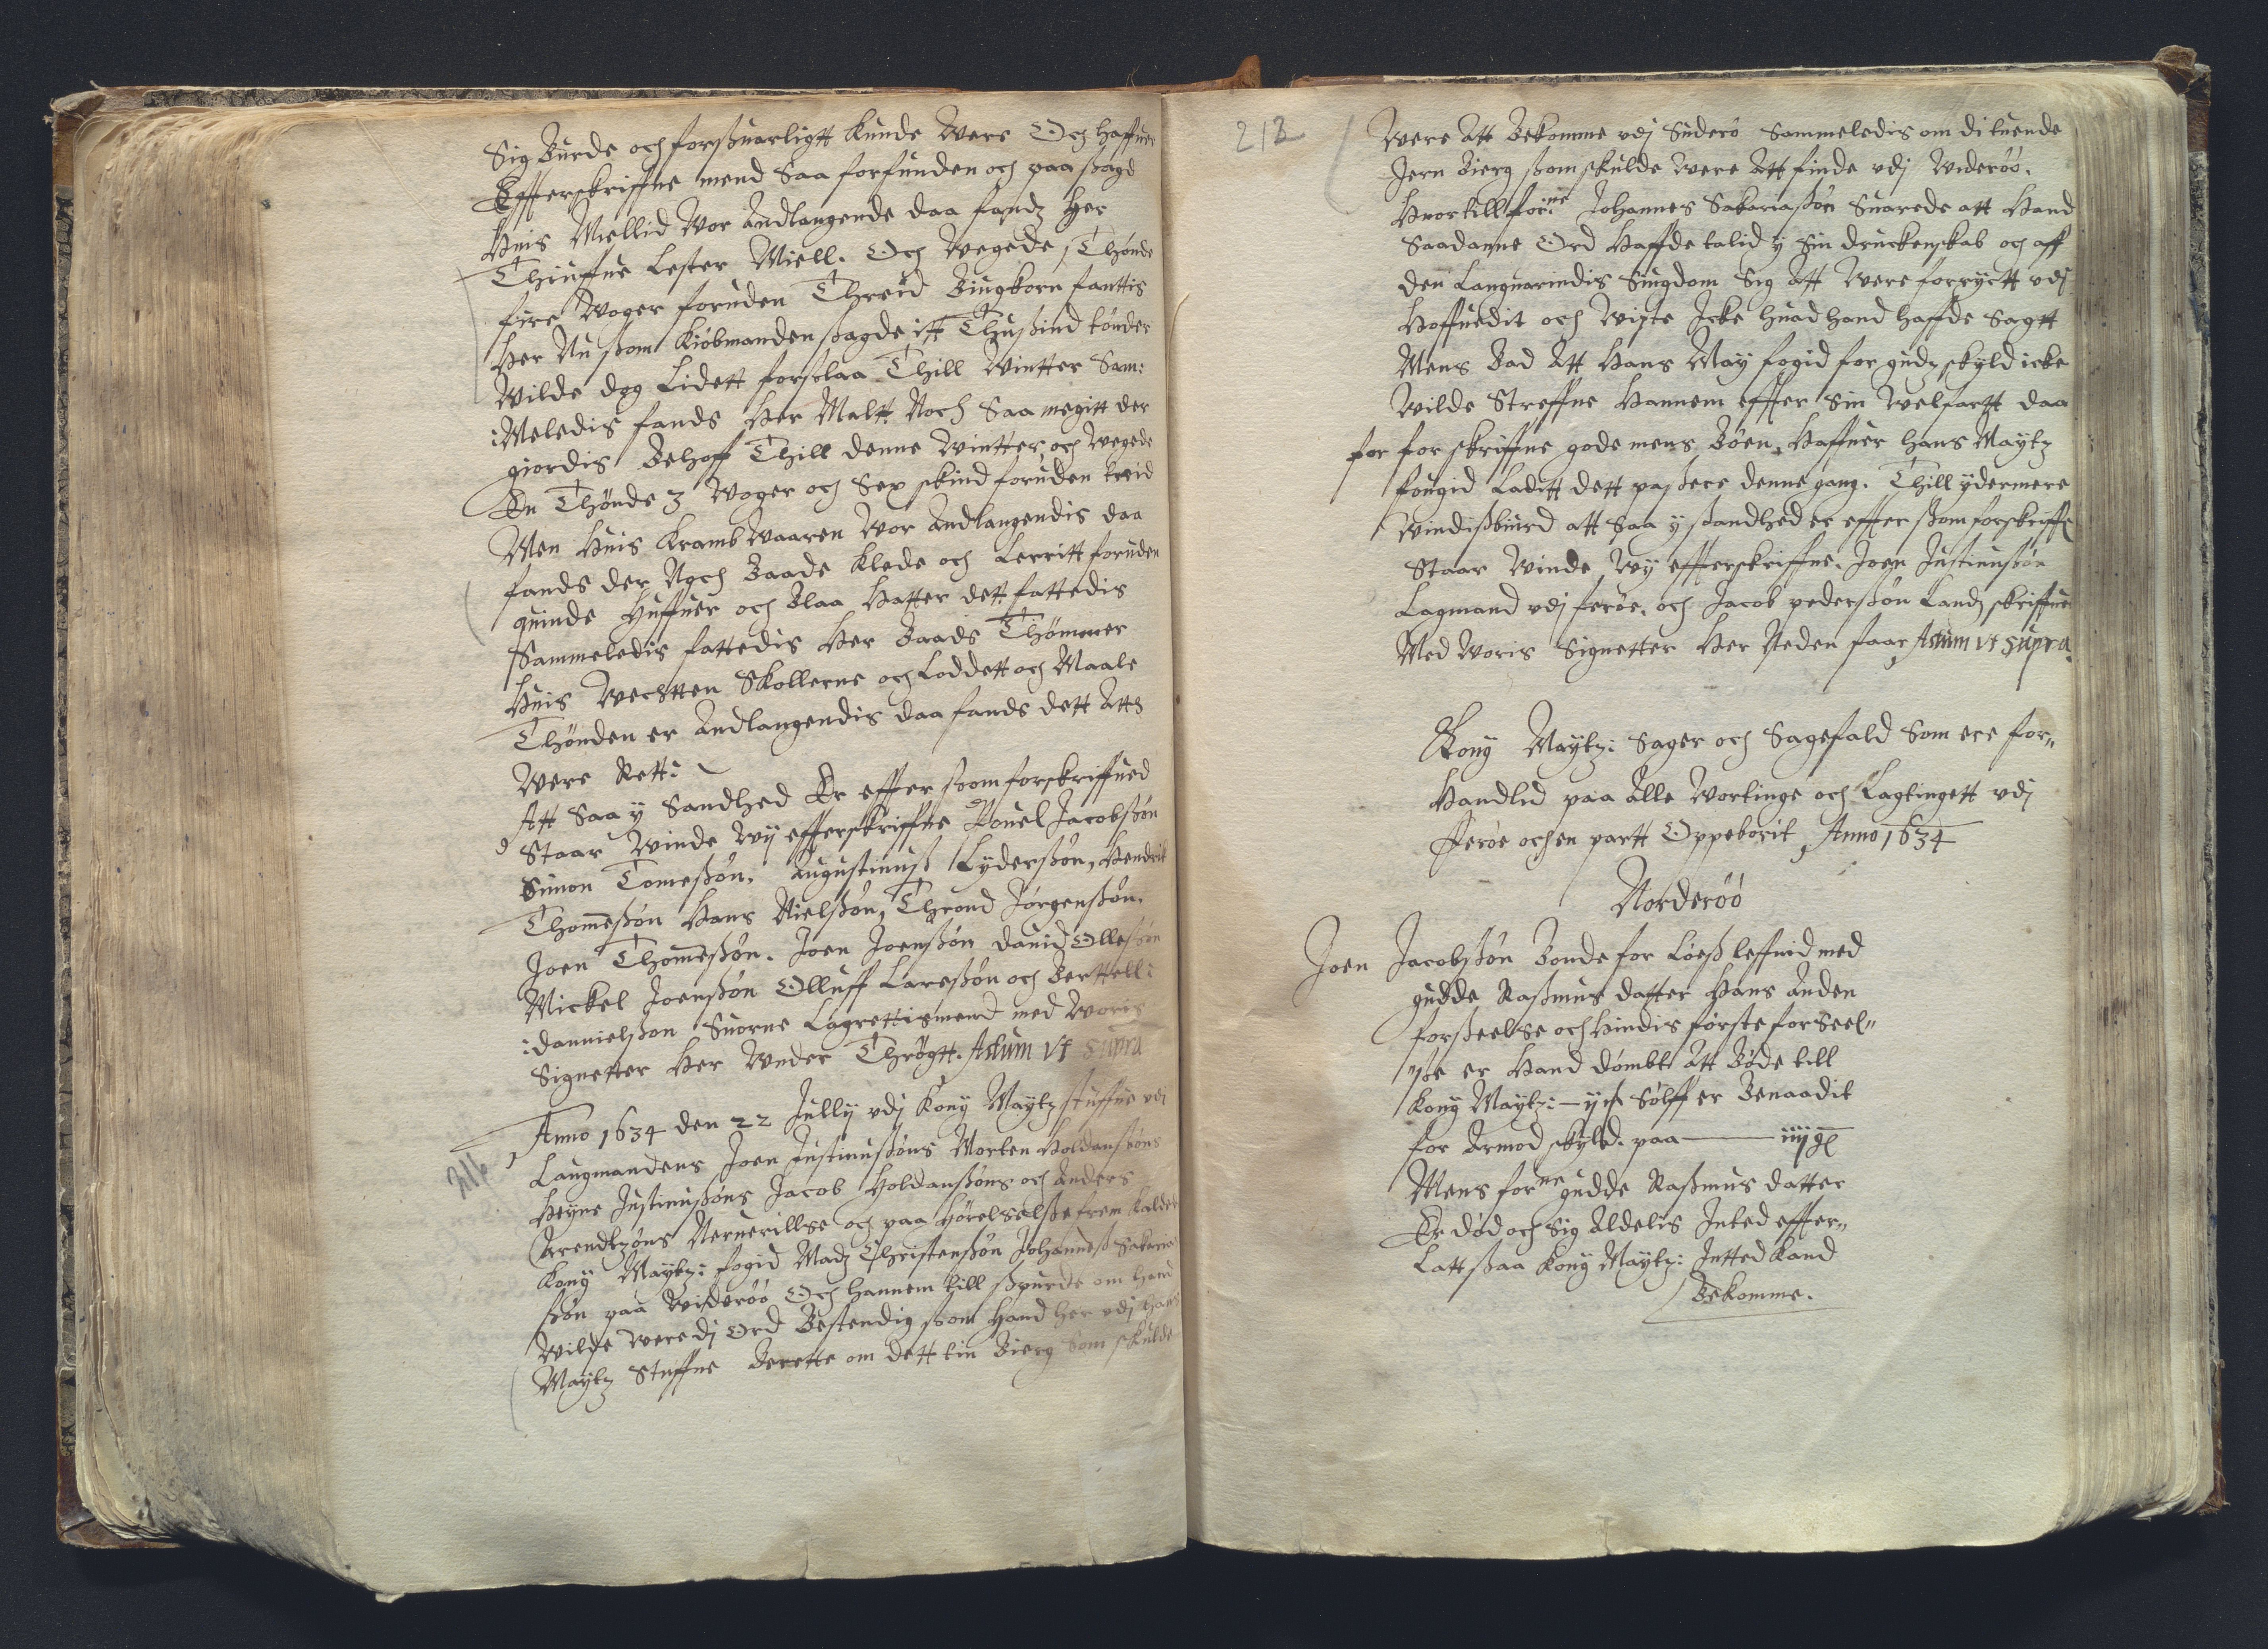 Sig Burde och forßuarligtt kunde were Och haffuer
Effterskriffne mend Saa forfunden och paa ßagd
Huis Miellid Wor Andlangende daa fandz her
Thiuffue Lester Miell. Och Wegede 1 Thønde
fire Woger foruden Threid Biugkorn fanttis
Her Nu ßom Kiøbmanden ßagde itt Thußind tønder
Wilde dog Lidett forslaa Thill Wintter Sam:
:Meledis fands Her Maltt Noch Saa megitt der
giordis Behoff Thill denne Wintter, och Wegede
En Thønde 3 Woger och Sex skind foruden treid
Men Huis Kramb Waaren Wor Andlangendis daa
fands der Noch Baade Klede och Lerritt foruden
quinde Huffuer och Blaa Hatter dett fattedis
Sammeledis fattedis Her Baads Thømmer
Huis Wechtten Skollerne och Loddett och Maale
Thønden er Andlangendis daa fands dett Att
Were Rett:
Att Saa y Sandhed Er effter ßom forskriffued
Staar Winde Wij effterskriffne Pouel Jacobßøn
Simon Tomeßøn. Augustinuß Lyderßøn, Hendrik
Thomeßøn Hans Nielßøn, Thrond Jørgenßøn.
Joen Thomeßøn. Joen Joenßøn dauid Olleßøn
Mickel Joenßøn Olluff Lareßøn och Berttell:
:dannielßøn Suorne Lagrettismend med Woris
Signetter Her Wnder Thrøgtt. Actum vt supra
Anno 1634 den 22 Jully vdj Kong Maytz stuffue vdi
216
Laugmandens Joen Justinußøns Morten Holdanßøns
Heyne Justinußøns Jacob Holdanßøns och Anders
Arendtzøns Neruerillse och paa Hørelse frem kalder
Kong Maytz: fogid Madz Christenßøn Johanneß Sakaria
ßøn paa Widerøø Och hannem till ßpurde om hand
Wilde were dj Ord Bestendig ßom Hand her vdj hans
Maytz Stuffue Berette om dett tin Bierg Som skulde
212
Were Att Bekomme vdj Suderø Sammeledis om di tuende
Jern Bierg ßom skulde Were Att finde vdj Widerøø.
Huortill for:ne Johannes Sakariaßøn Suarede att Hand
Saadanne Ord Haffde talid y Sin druckenskab och aff
den Languarindis Siugdom Sig Att Were forryctt vdj
Hoffuedit och Wiste Icke huad hand haffde Sagtt
Mens Bad Att Hans May fogid for gudz skyld icke
Wilde Streffue Hannem effter Sin Welfartt daa
for forskriffne gode mens Bøen, Haffuer hans Maytz
fougid Laditt dett passere denne gang. Thill ydermere
Windißbiurd att Saa y ßandhed er effter ßom forskriffe
Staar Winde Wij effterskriffne. Joen Justinußøn
Lagmand vdj ferøe, och Jacob pederßøn Landz skriffue
Med Woris Signetter Her Neden faar, Actum vt supra
Kong Maytz: Sager och Sagefald Som ere for„
Handlid paa Alle Wortinge och Lagtingett vdj
fferøe och en partt Oppeborit, Anno 1634
Norderøø
Joen Jacobßøn Bonde for Løeß leffnid med
gudde Raßmus datter Hans Anden
forßeelße och Hindis første forSeel„
„ße er Hand dømbt Att Bøde till
Kong Maytz: – Sølff er Benaadit
for Armod skyld. paa —— iiij
Mens for:ne gudde Raßmus datter
Er død och Sig Aldelis Inted effter„
Latt ßaa Kong Maytz: Intted Kand
Bekomme.